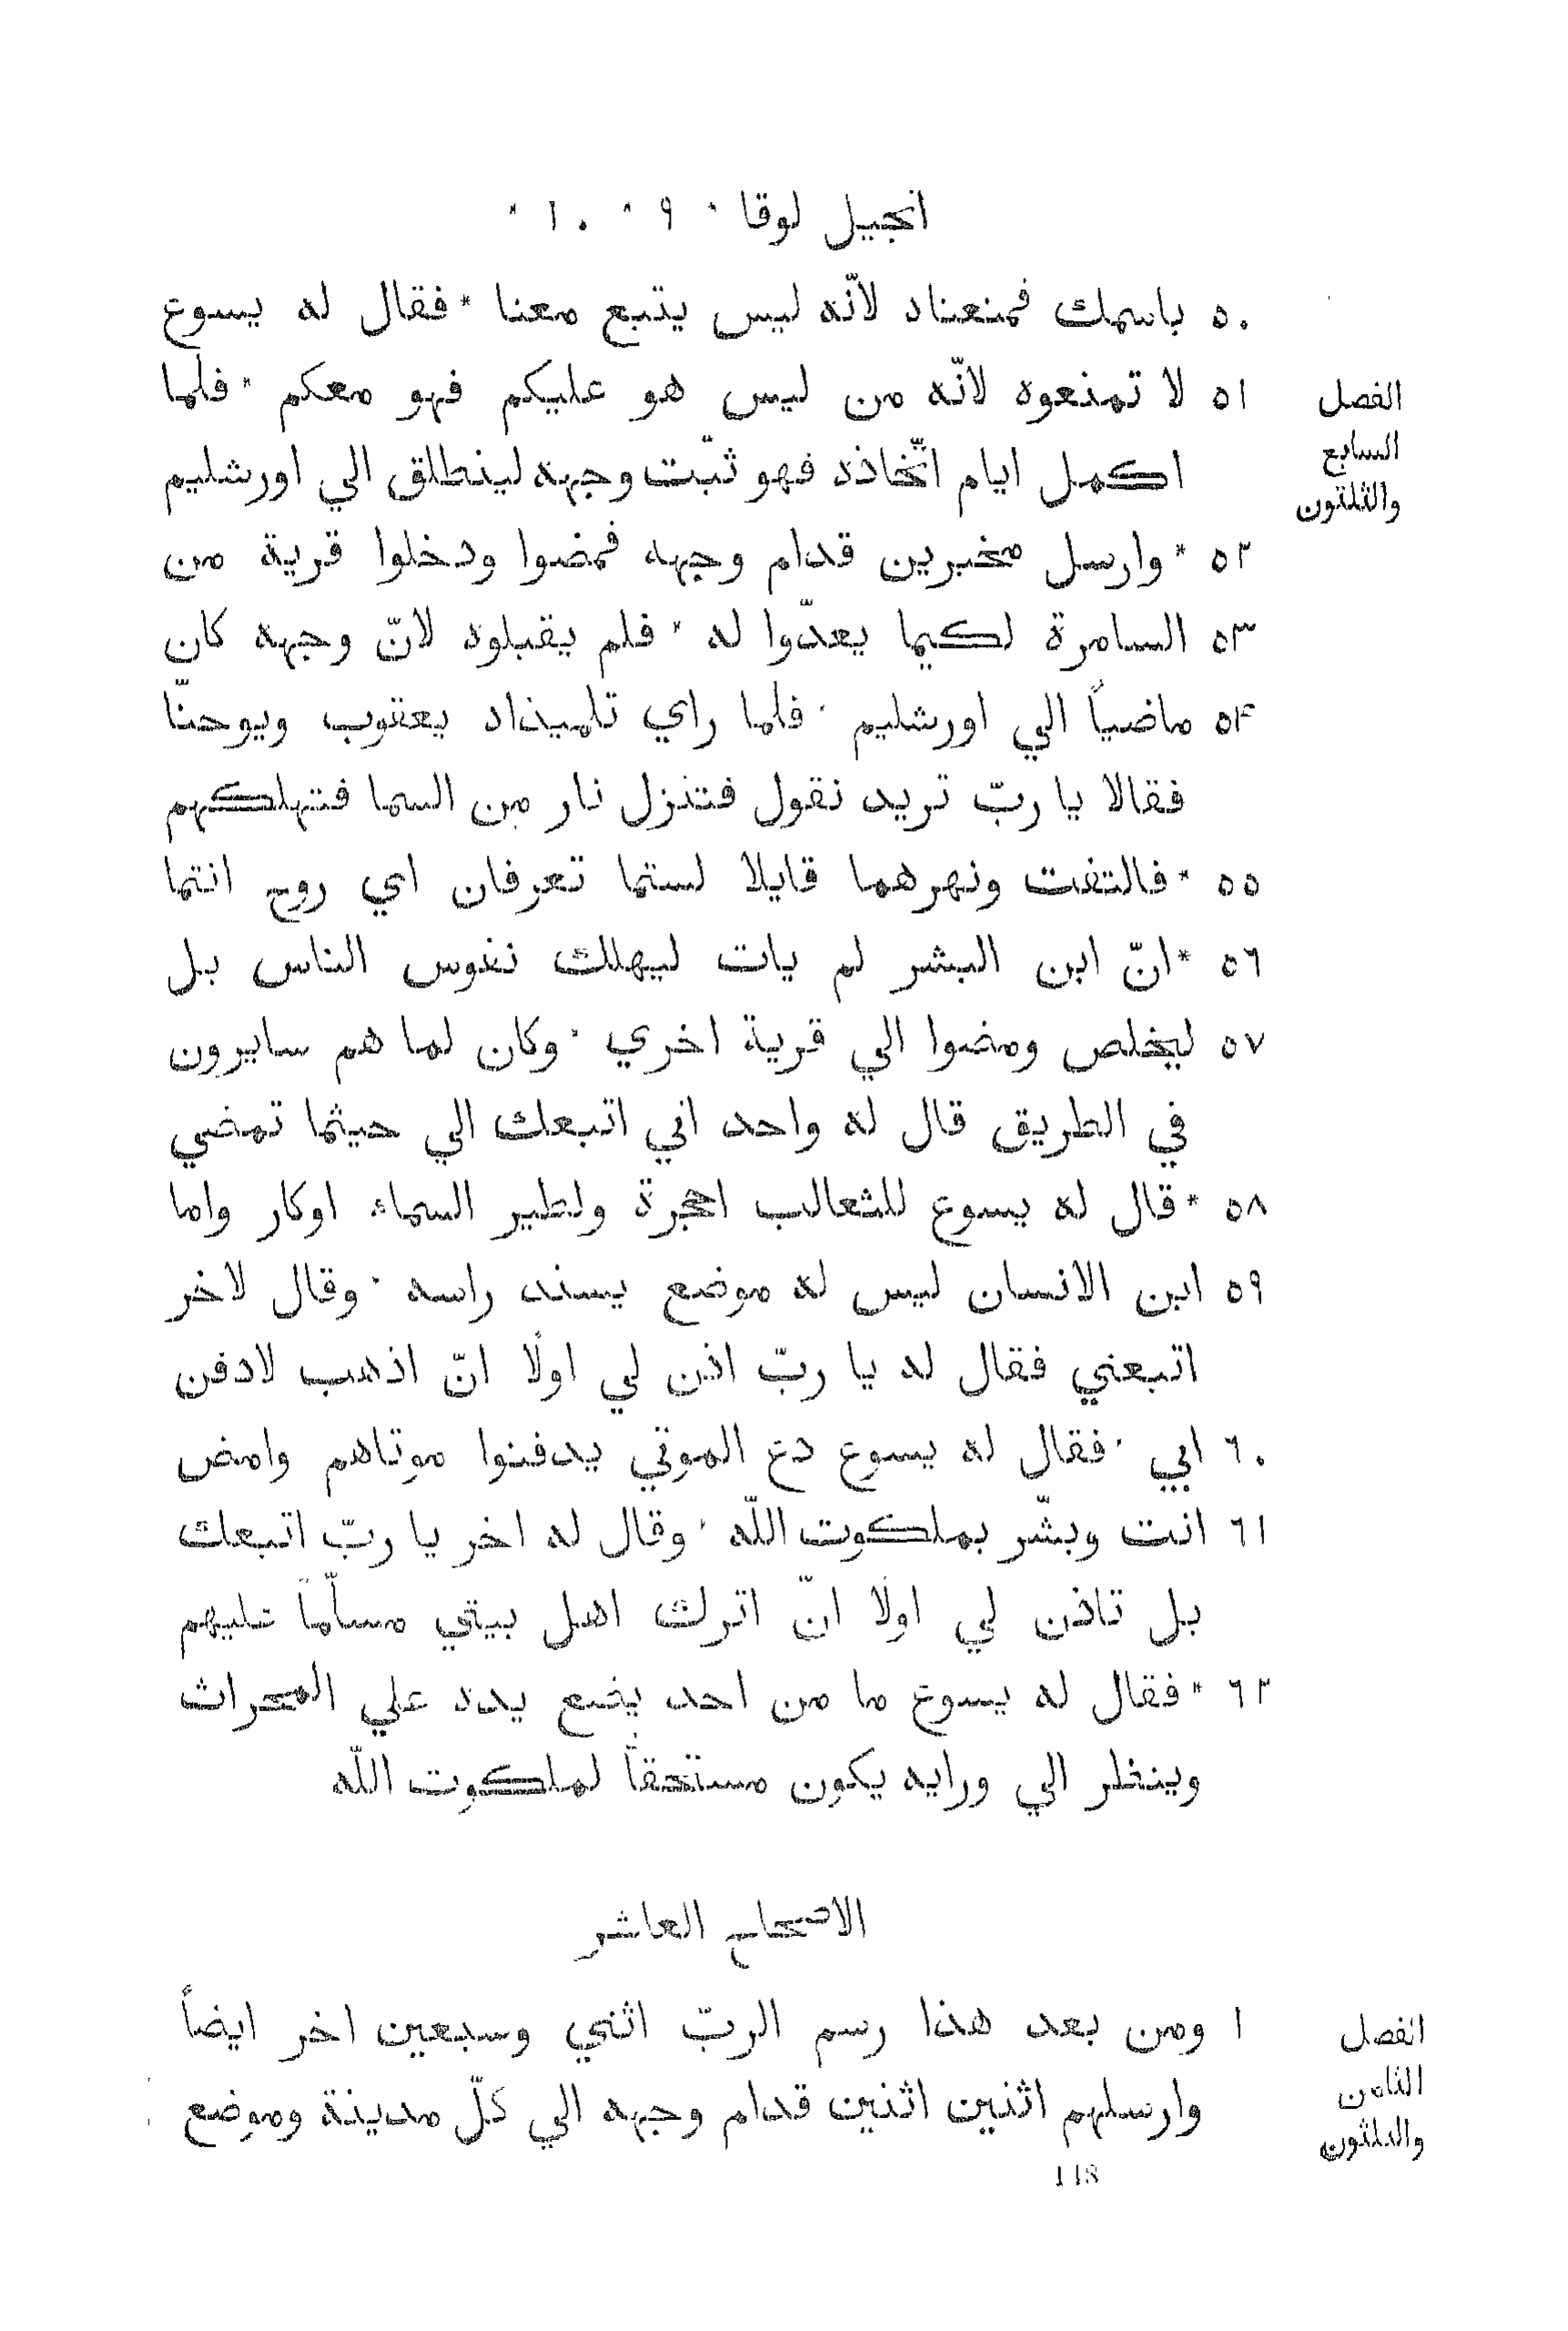 انجيل لوقا * ٩ * ١٠ *
٥٠ باسمك فمنعناه لانّه ليس يتبع معنا * فقال له يسوع
٥١ لا تمنعوه لانّه من ليس هو عليكم فهو معكم * فلما
الفصل
السابع
والثلثون
اكمل ايام اتّخاذه فهو ثبّت وجهه لينطلق الي اورشليم
٥٢ * وارسل مخبرين قدام وجهه فمضوا ودخلوا قرية من
٥٣ السامرة لكيما يعدّوا له * فلم يقبلوه لانّ وجهه كان
٥۴ ماضياً الي اورشليم * فلما راي تلميذاه يعقوب ويوحنّا
فقالا يا ربّ تريد نقول فتنزل نار من السما فتهلكهم
٥٥ * فالتفت ونهرهما قايلا لستما تعرفان اي روح انتما
٥٦ * انّ ابن البشر لم يات ليهلك نفوس الناس بل
٥٧ ليخلص ومضوا الي قرية اخري * وكان لما هم سايرون
في الطريق قال له واحد اني اتبعك الي حيثما تمضي
٥٨ * قال له يسوع للثعالب احجرة ولطير السماء اوكار واما
٥٩ ابن الانسان ليس له موضع يسند راسه * وقال لاخر
اتبعني فقال له يا ربّ اذن لي اولًا انّ اذهب لادفن
٦٠ ابي * فقال له يسوع دع الموتي يدفنوا موتاهم وامض
٦١ انت وبشّر بملكوت اللّه * وقال له اخر يا ربّ اتبعك
بل تاذن لي اولًا انّ اترك اهل بيتي مسلّماً عليهم
٦٢ * فقال له يسوع ما من احد يضع يده علي المحراث
وينظر الي ورايه يكون مستحقاً لملكوت اللّه
الاصحاح العاشر
١ ومن بعد هذا رسم الربّ اثني وسبعين اخر ايضاً
الفصل
الثامن
والثلثون
وارسلهم اثنين اثنين قدام وجهه الي كلّ مدينة وموضع
148